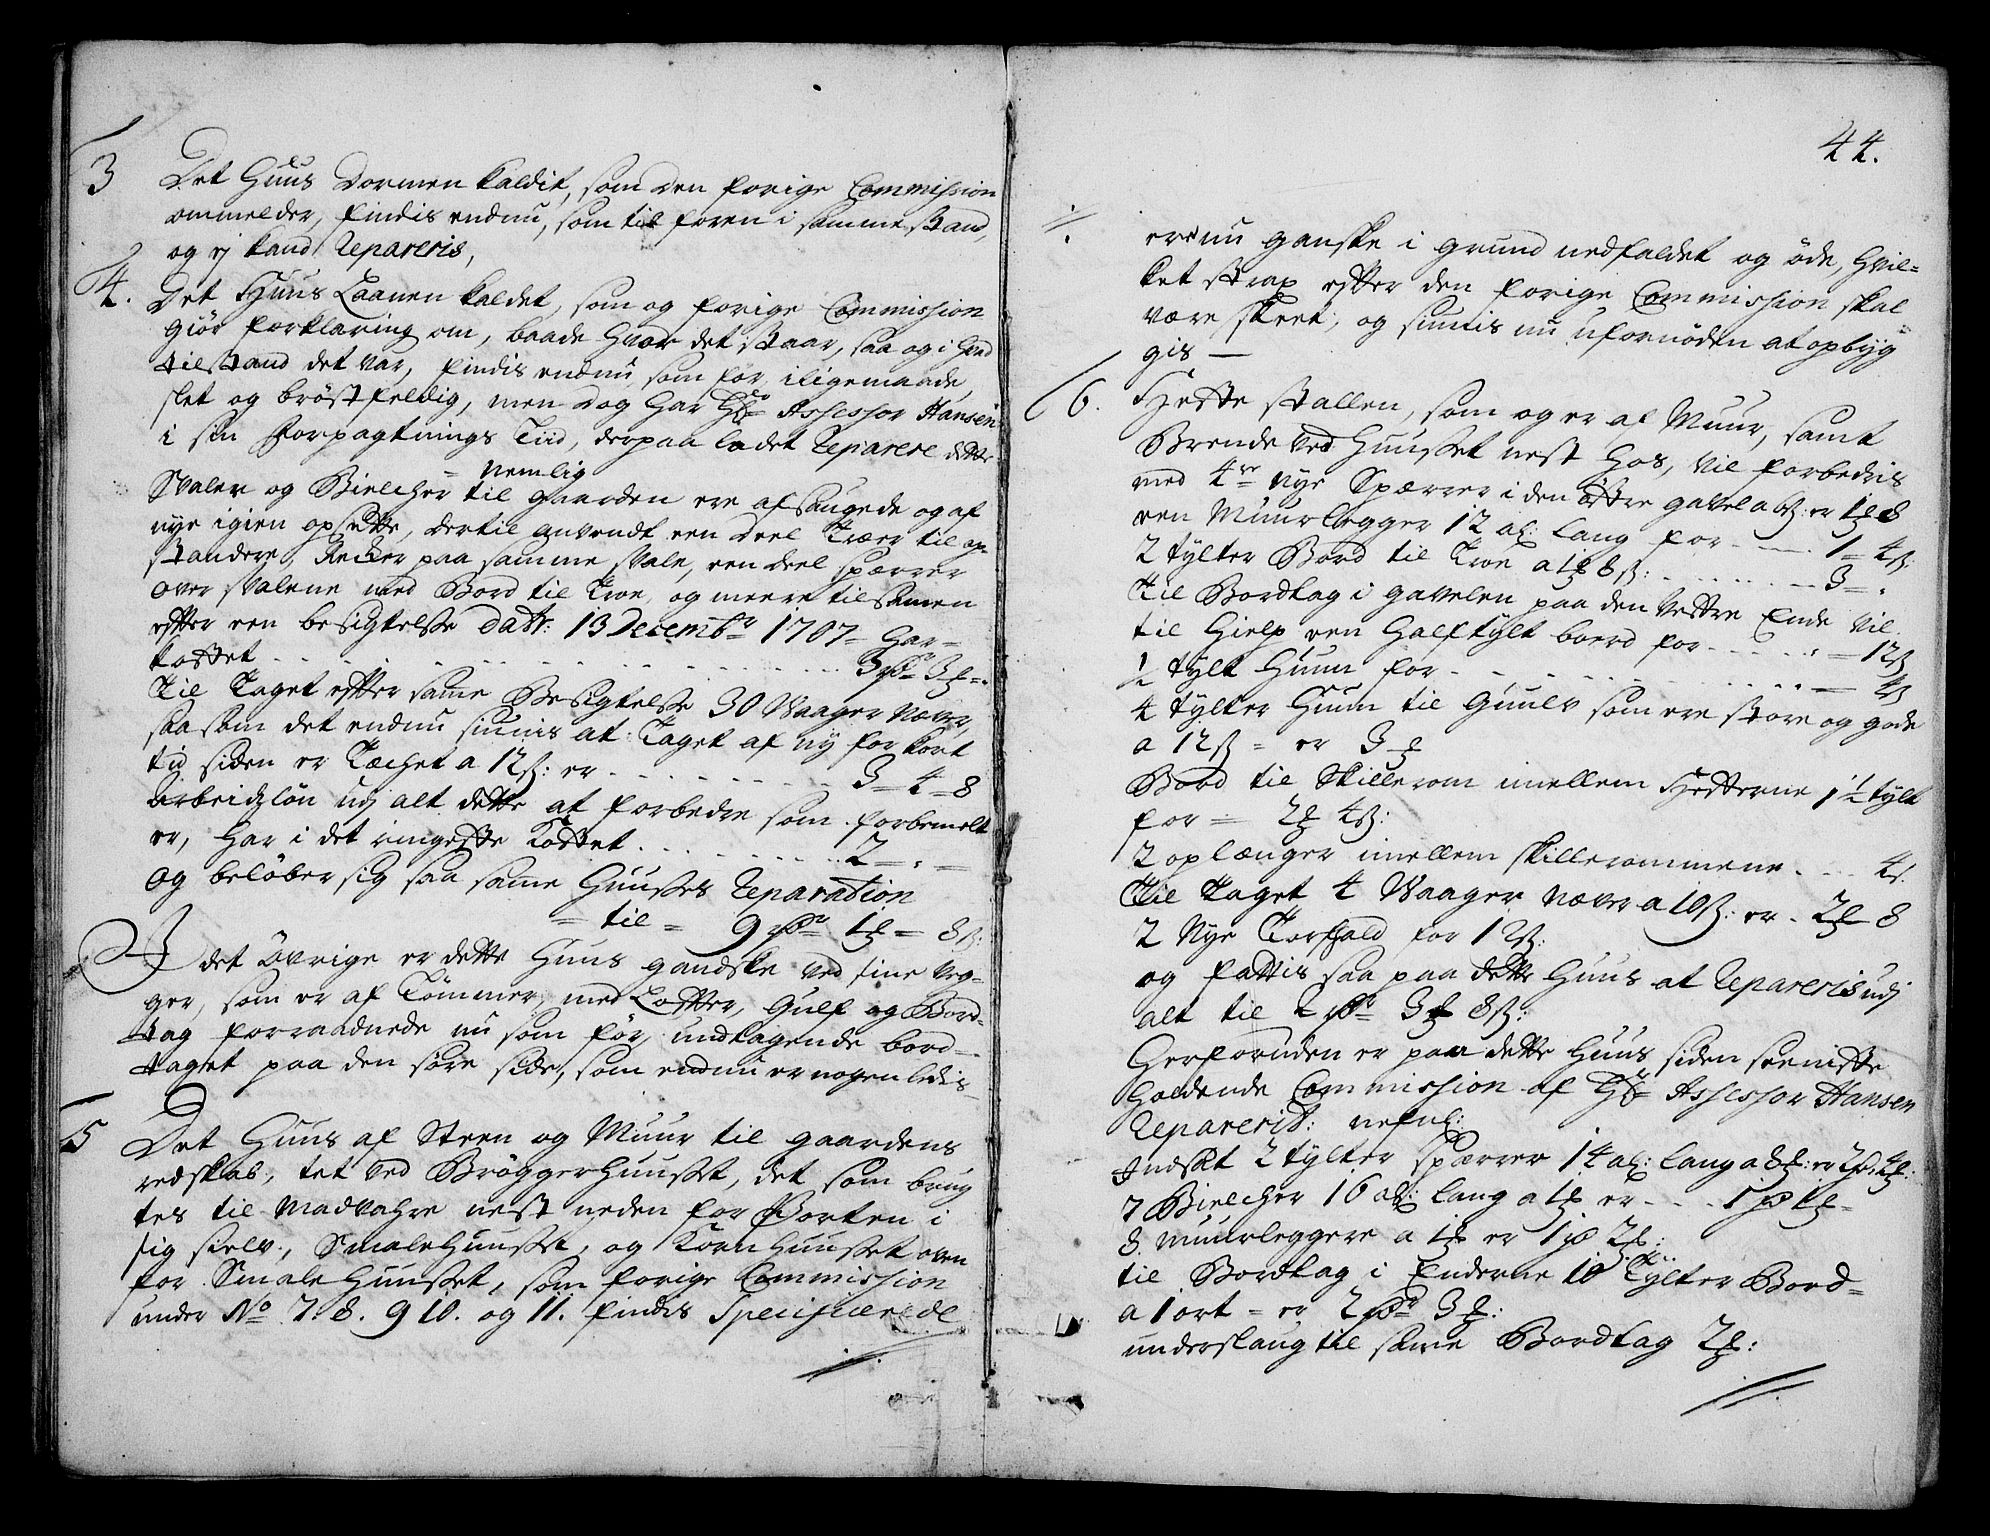 3 Det Huus Dormen kaldit, som den forige Commission
ommelder, findis endnu, som til foren i samme stand,
og ej kand Repareris,
4. Det Huus Laanen kaldet, som og forige Commission
giør forklaring om, baade hvor det staar, saa og i hvad
tilstand det var, findis endnu, som før, iligemaade,
slet og brøstfeldig, men dog har Hr Assessor Hansen
i sin forpagtnings Tiid, derpaa ladet Reparere dette
= Nemlig
Svaler og Bielcher til gaarden ere afhaugede og af
nye igien opsatte, dertil anvendt een deel Træer til op
standere, Recker paa samme svale, een deel spærrer
over svalene med Bord til Troe, og meere tilsamen
effter een besigtelse datr: 13 Decembr 1707 = har =
kostet . . . 3 rdr 3 ℔ = .
Til Taget effter same Besigtelse 30 Waager Næver,
saa som det endnu siunis at Taget af ny for kort
tid siden er Tæchet a 12 s: er . . . 3 = 4 = 8
Arbeidzløn udj alt dette at forbedre som forbemelt
er, har i det ringeste kostet . . . 2 = . =
og beløber sig saa same Huuses Reparation
= til = 9 rdr 1 ℔ = 8 s:
I det øvrige er dette Huus gandske ved sine veg-
ger, som er af Tømmer, med Loffter, Gulf og Bord-
tag forraadnede nu som før, undtagende bord-
taget paa den søre side, som endnu er nogenledis
5 Det Huus af Steen og Muur til gaardens
redskab, tet ved Brøggerhuuset, det som brug
tes til Madvahre nest neden for Porten i
sig sielv, Smalehuuset, og Kornhuuset oven
for Smalehuuset, som forige Commission
under No 7. 8. 9 10. og 11. findis Specificerede
44.
ere nu ganske i grund nedfaldet og øde, hvil=
ket strax effter den forige Commission skal
være skeet, og siunis nu ufornøden at opbyg
gis —
6. Heste stallen, som og er af Muur, samt
Brendeved Huuset nest hos, vil forbedris
med 4re nye Spærrer i den østre gavel a 8 s: er 1 ℔ 8
een Muurlegger 12 al: lang for . . . 1 = 4 s:
2 tylter Bord til Troe a 1 ℔ 8 s: . . . 3 = .
Til Bordtag i gavelen paa den vestre Ende vil
til hielp een half tylt boerd for . . . = 12 s
½ tylt Huun for . . . = 4 s
4 tylter Huun til Guulv som ere store og gode
a 12 s = er 3 ℔
Bord til Skillerom imellem Hesterne 1 ½ tylt
for = 2 ℔ 4 s:
2 oplænger imellem skillerommene . . . 4 s.
Til Taget 4 Waager Næver a 10 s: er . 2 ℔ 8
2 Nye Torfhald for 12 s:
og fattis saa paa dette Huus at Repareris udj
alt til 2 rdr 3 ℔ 8 s:
Herforuden er paa dette Huus siden seeniste
holdende Commission af Hr Assessor Hansen
Reparerit: nefnl:
Indsat 2 tylter spærrer 14 al: lang a 8 ℔: er 2 rd. 4 ℔:
7 Bielcher 16 al: lang a 1 ℔ er . . . 1 rd 1 ℔ =
8. muurleggere a 1 ℔ er 1 rd 2 ℔:
til Bordtag i Enderne 10 Tylter Bord =
a 1 ort = er 2 rdr 3 ℔:
underslaug til same Bordtag 2 ℔: